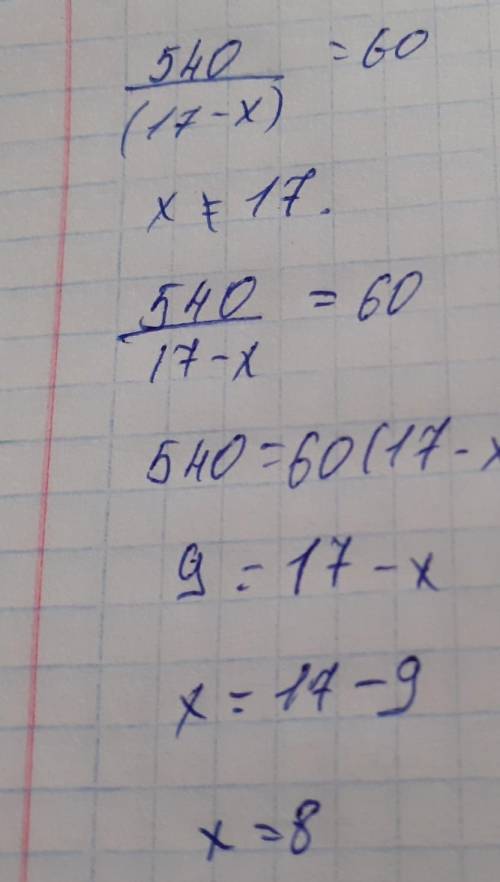 540/(17-x) = 60
x ≠ 17.
540/17-x = 60
540=60(17-x
9=17-x
x=17-9
x=8